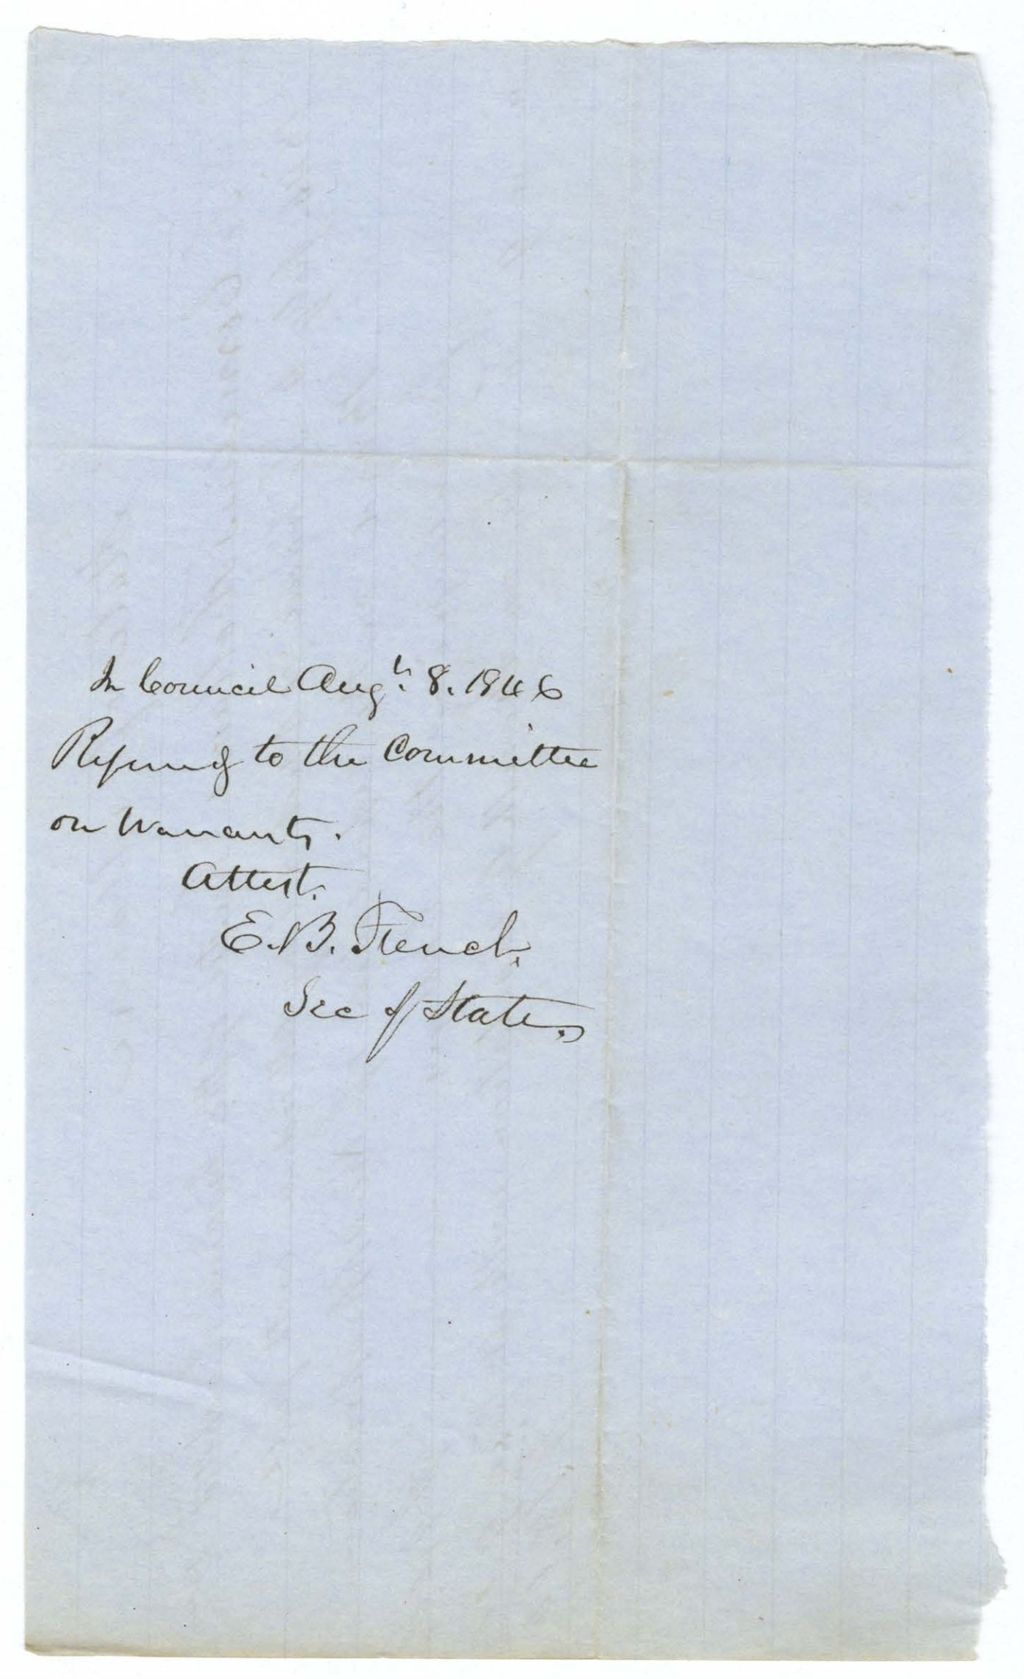 In Council Augt. 8. 1846
Referred to the Committee
on Warrants.
Attest.
E. B. French.
Sec of State.